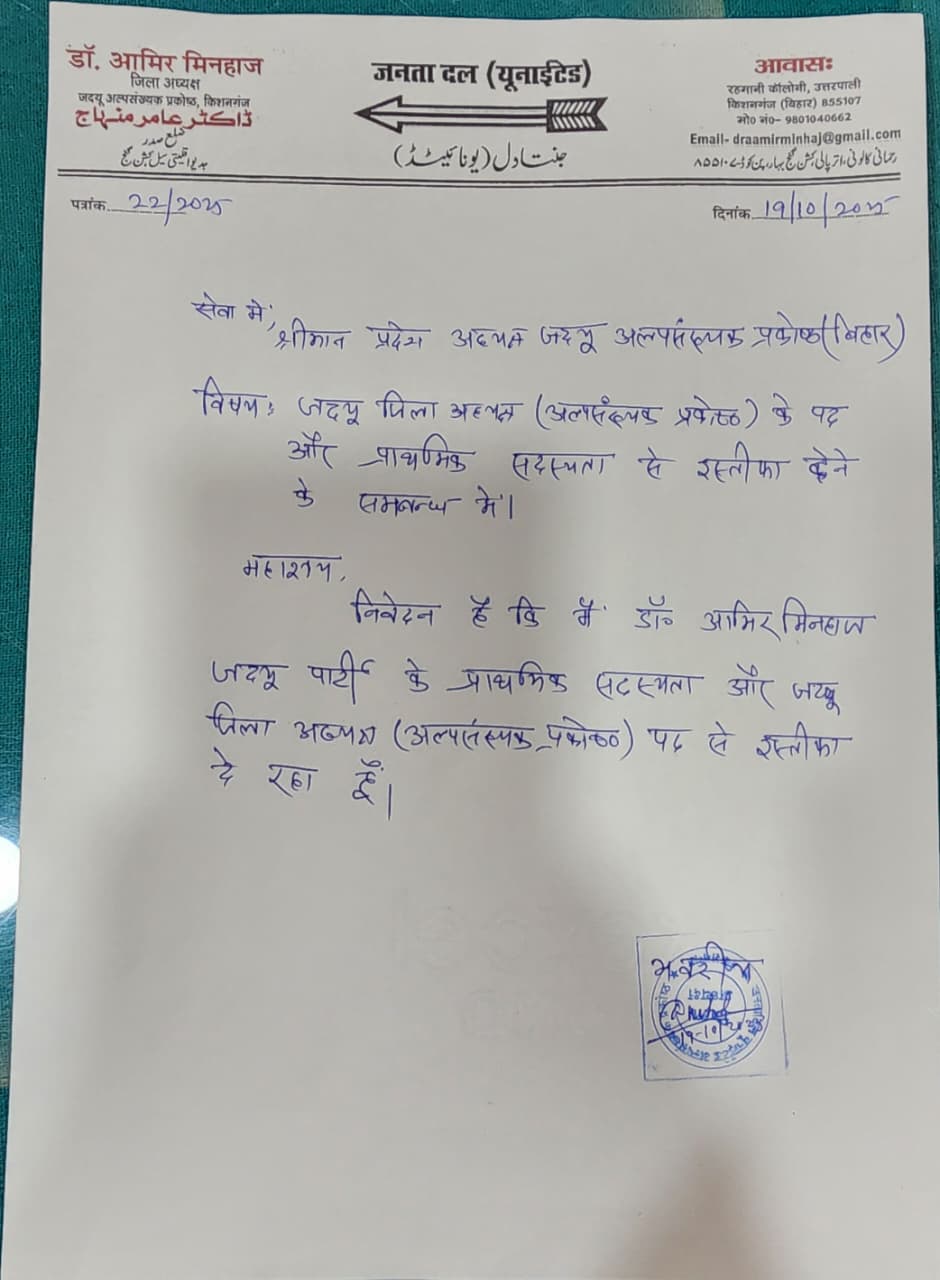 डॉ. आमिर मिनहाज
जिला अध्यक्ष
जदयू अल्पसंख्यक प्रकोष्ठ, किशनगंज
ڈاکٹر عامر منہاج
ضلع صدر
جدیو اقلیتی سیل کشن گنج
जनता दल (यूनाईटेड)
جنتا دل (یونائیٹڈ)
आवासः
रहमानी कॉलोनी, उत्तरपाली
किशनगंज (बिहार) 855107
मो० नं०- 9801040662
Email- draamirminhaj@gmail.com
رحمانی کالونی، اتر پالی، کشن گنج بہار، پن کوڈ
पत्रांक 22/2025
दिनांक 19/10/2025
सेवा में,
श्रीमान प्रदेश अध्यक्ष जदयू अल्पसंख्यक प्रकोष्ठ (बिहार)
विषय: जदयू जिला अध्यक्ष (अल्पसंख्यक प्रकोष्ठ) के पद
और प्राथमिक सदस्यता से इस्तीफा देने
के सम्बन्ध में।
महाशय,
निवेदन है कि मैं डॉ० आमिर मिनहाज
जदयू पार्टी के प्राथमिक सदस्यता और जदयू
जिला अध्यक्ष (अल्पसंख्यक प्रकोष्ठ) पद से इस्तीफा
दे रहा हूँ।